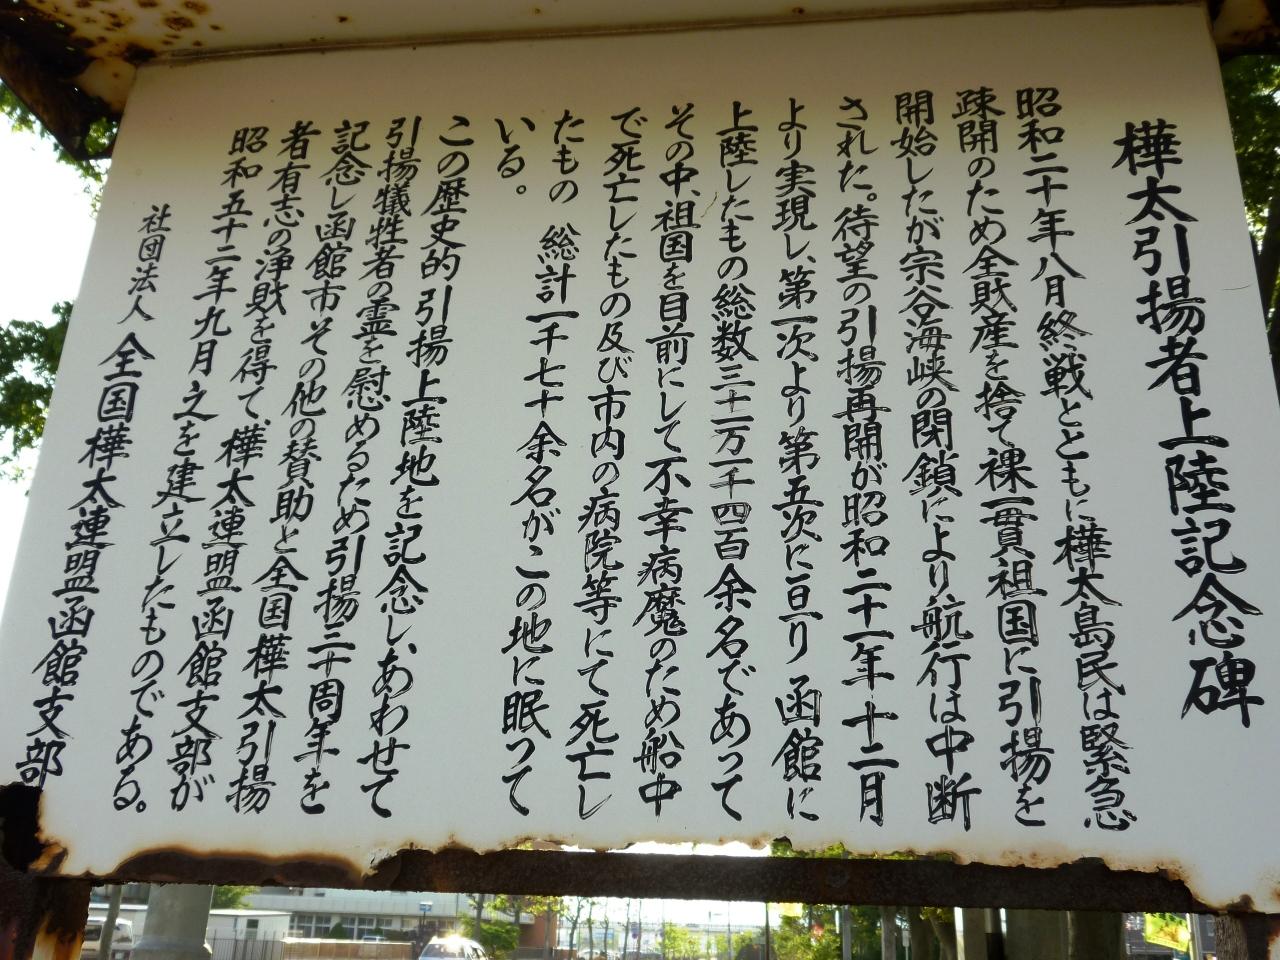 樺太引揚者上陸記念碑
昭和二十年八月終戦とともに樺太島民は緊急
疎開のため全財産を捨て裸一貫祖国に引揚を
開始したが宗谷海峡の閉鎖により航行は中断
された。待望の引揚再開が昭和二十一年十二月
より実現し、第一次より第五次に亘り函館に
上陸したもの総数三十一万一千四百余名であって
その中、祖国を目前にして不幸病魔のため船中
で死亡したもの及び市内の病院等にて死亡し
たもの 総計一千七十余名がこの地に眠って
いる。
この歴史的引揚上陸地を記念し、あわせて
引揚犠牲者の霊を慰めるため引揚三十周年を
記念し函館市その他の賛助と全国樺太引揚
者有志の浄財を得て、樺太連盟函館支部が
昭和五十二年九月之を建立したものである。
社団法人 全国樺太連盟函館支部